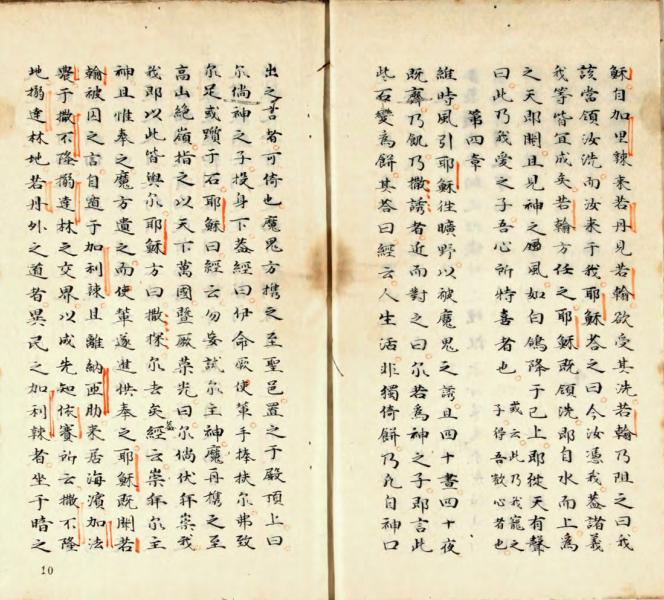 穌自加里辣来若丹見若翰欲受其洗若翰乃阻之曰我
該當領汝洗而汝来于我耶穌荅之曰今汝憑我葢諸義
我等皆冝成矣若翰方任之耶穌既領洗即自水而上為
之天即開且見神之風如白鴿降于己上耶従天有聲
曰此乃我愛之子吾心所特喜者也
或云此乃我寵之
子得吾歡心者也
第四章
維時風引耶穌徃曠野以被魔鬼之誘且四十晝四十夜
既齋乃飢乃撒誘者近而對之曰尔若為神之子即言此
此石變為餅其荅曰經云人生活非獨倚餅乃凢自神口
出之言者可倚也魔鬼方携之至聖邑置之于殿頂上曰
尔倘神之子投身下葢經曰伊命厥使軰手捧扶尔弗致
尔足或躓于石耶穌曰經云勿妄試尔主神魔再携之至
高山絶嶺指之以天下萬國曁厥荣光曰尔倘伏拜崇我
我即以此皆與尔耶穌方曰撒殫尔去矣葢經云崇拜尔主
神且惟奉之魔方遺之而使軰遂進供奉之耶穌既聞若
翰被囚之言自適于加利辣且離納匝肋来居海濱加法
農于撒不隆搦逹林之交界以成先知依賽所云撒不隆
地搦逹林地若丹外之道者異民之加利辣者坐于暗之
10